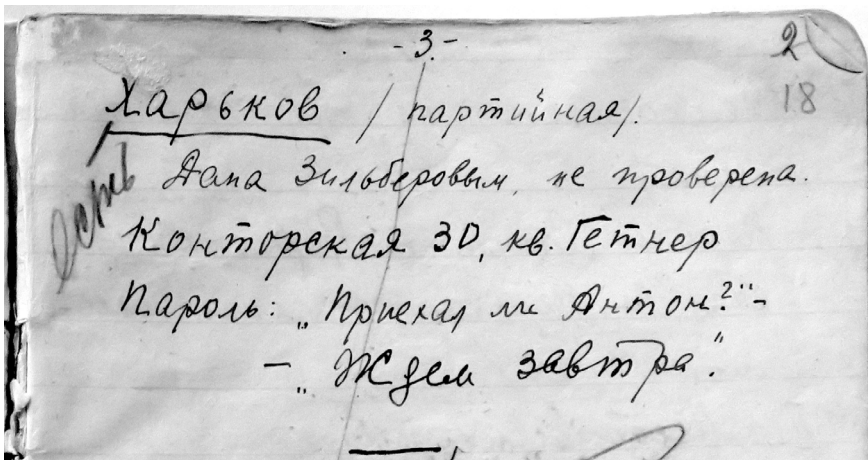 - 3. -
2
18
Харьков / партийная/.
есть
Дана Зильберовым, не проверена.
Конторская 30, кв. Гетнер
Пароль: „Приехал ли Антон?“ -
- „Ждем завтра“.